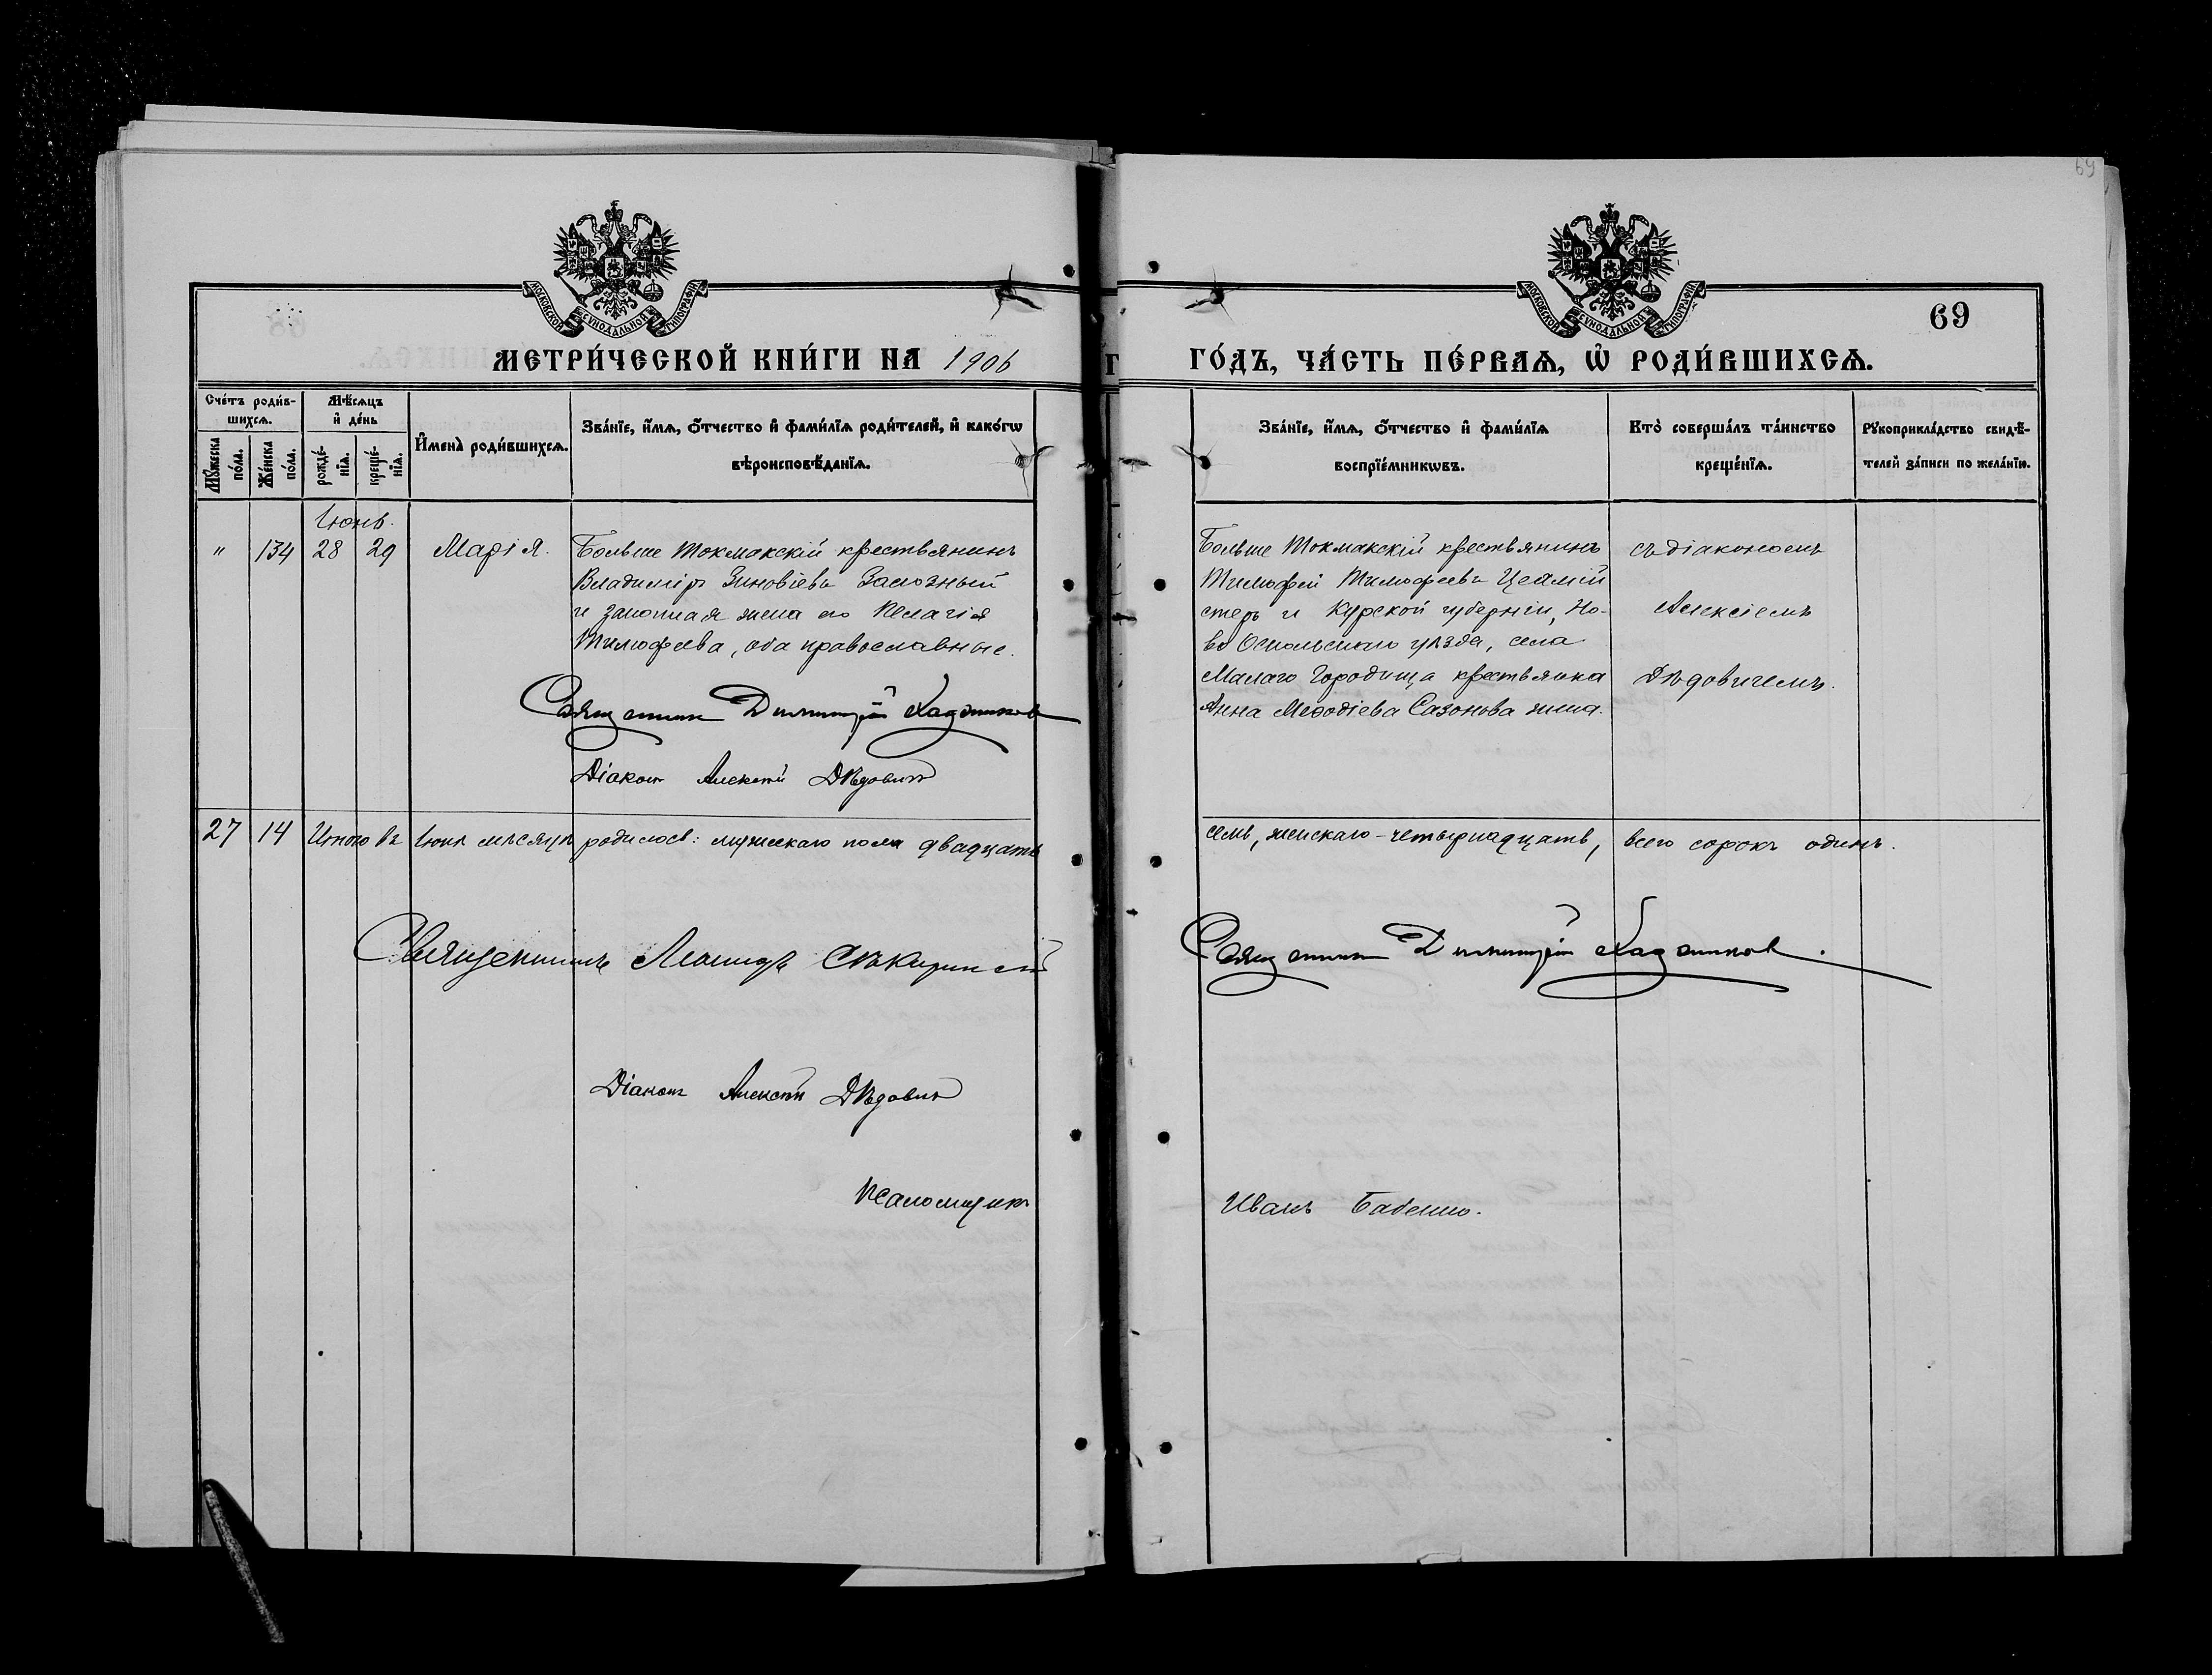 69
МОСКОВСКОЙ СѴНОДАЛЬНОЙ ТИПОГРАФІИ
МОСКОВСКОЙ СѴНОДАЛЬНОЙ ТИПОГРАФІИ
69
МЕТРИ́ЧЕСКОЙ КНИ́ГИ НА 1906
ГО́ДЪ, ЧА́СТЬ ПЕ́РВАѦ, Ѡ҆ РОДИ́ВШИХСѦ.
Сче́тъ роди́в-
шихсѧ.
Мѣ́сѧцъ
и҆ де́нь
Мꙋ́жеска по́ла.
Же́нска по́ла.
рожде́-нїѧ.
креще́-нїѧ.
И҆мена̀ роди́вшихсѧ.
Зва́нїе, и҆́мѧ, ѻ҆́тчество и҆ фами́лїѧ роди́телей, и҆ како́гѡ
вѣроисповѣ́данїѧ.
Зва́нїе, и҆́мѧ, ѻ҆́тчество и҆ фами́лїѧ
воспрїе́мникѡвъ.
Кто̀ соверша́лъ та́инство
креще́нїѧ.
Рꙋкоприкла́дство свидѣ́-
телей за́писи по жела́нїю.
Іюнь.
" 134 28 29 Марія. Больше Токмакскій крестьянинъ
Владиміръ Зиновіевъ Залозный
и законная жена его Пелагія
Тимофеева, оба православные.
Священникъ Димитрій
Діаконъ Алексѣй Дѣдовичъ
Больше Токмакскій крестьянинъ
Тимофей Тимофеевъ
и Курской губерніи, Но-
во Оскольскаго уѣзда, села
Малаго Городища крестьянка
Анна Меѳодіева Сазонова жена.
съ діакономъ
Алексіемъ
Дѣдовичемъ.
27 14 Итого въ Іюнѣ мѣсяцѣ родилось: мужескаго пола двадцать
семь, женскаго - четырнадцать, всего сорокъ одинъ.
Священникъ Леонидъ
Священникъ Димитрій
Діаконъ Алексѣй Дѣдовичъ
Псаломщикъ
Иванъ Бабенко.